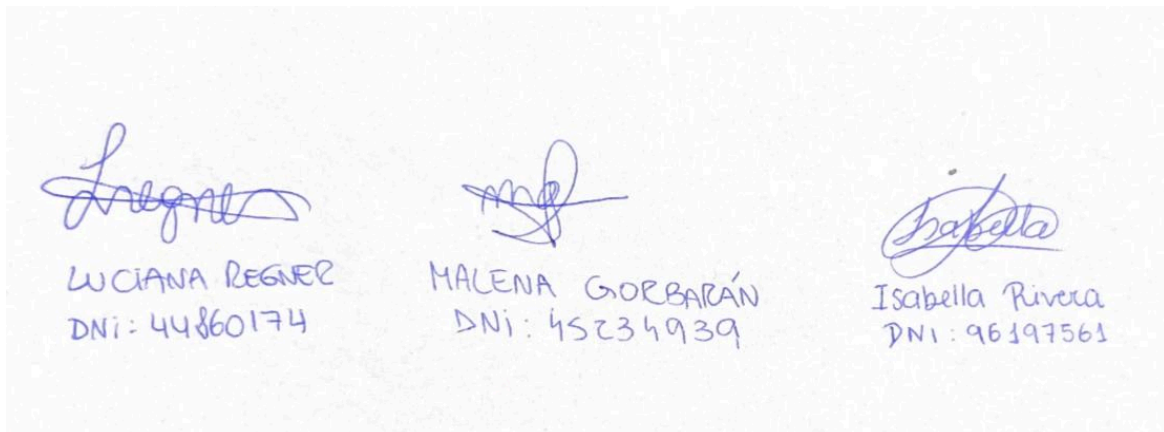 Lregner
LUCIANA REGNER
DNi: 44860174
mg
MALENA GORBARÁN
DNi: 45234939
Isabella
Isabella Rivera
DNI: 96197561